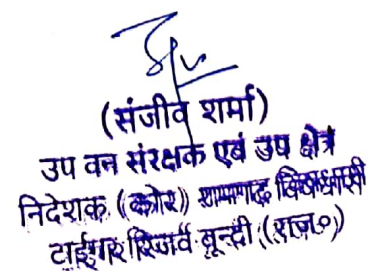 (संजीव शर्मा)
उप वन संरक्षक एवं उप क्षेत्र
निदेशक (कोर) रामगढ़ विषधारी
टाईगर रिजर्व बून्दी (राज०)